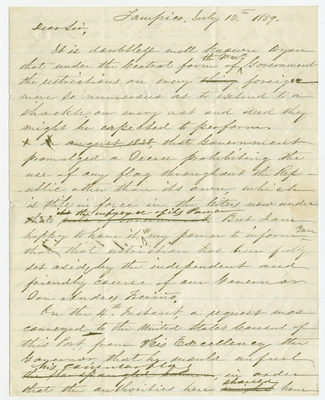 Tampico, July 12th 1859.
Dear Sir,
It is doubtless well known to you
that under the Central form of the Mexn Government
the restrictions on every thing foreign
were so numerous as to extend to a
shackle on every act and deed they
might be expected to perform.
August 1858 that Government
promulged a Decree prohibiting the
use of any flag throughout the Rep-
ublic other than its own, which
is still in force in the States now under
But I am
happy to have it in my power to inform you
that that restriction has been fully
set aside by the independent and
friendly course of our Governor
Don Andres
On the 4th Instant, a request was
conveyed to the United States Consul of
this Port, from His Excellency the
Governor, that he would unfurl
his Consular flag in order
that the authorities here should have